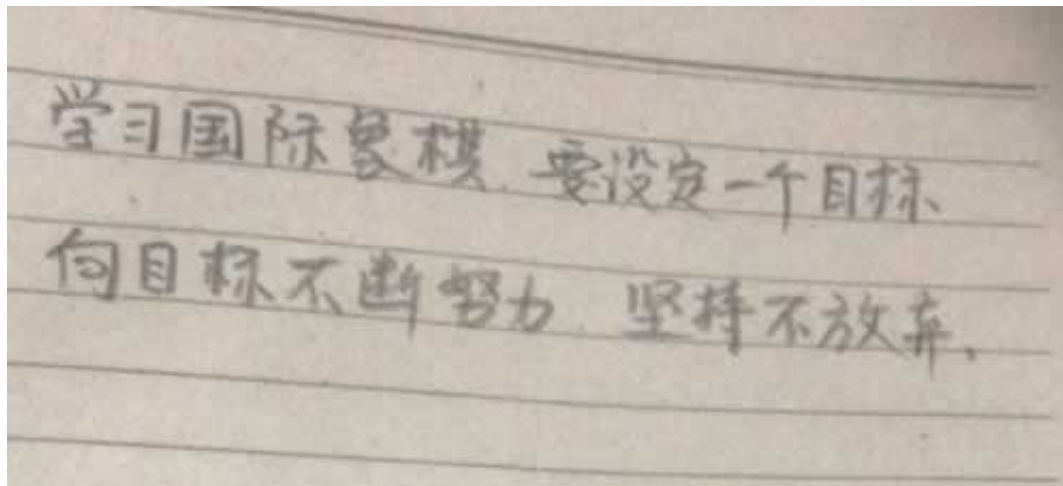 学习国际象棋.要设定一个目标、
向目标不断努力.坚持不放弃、